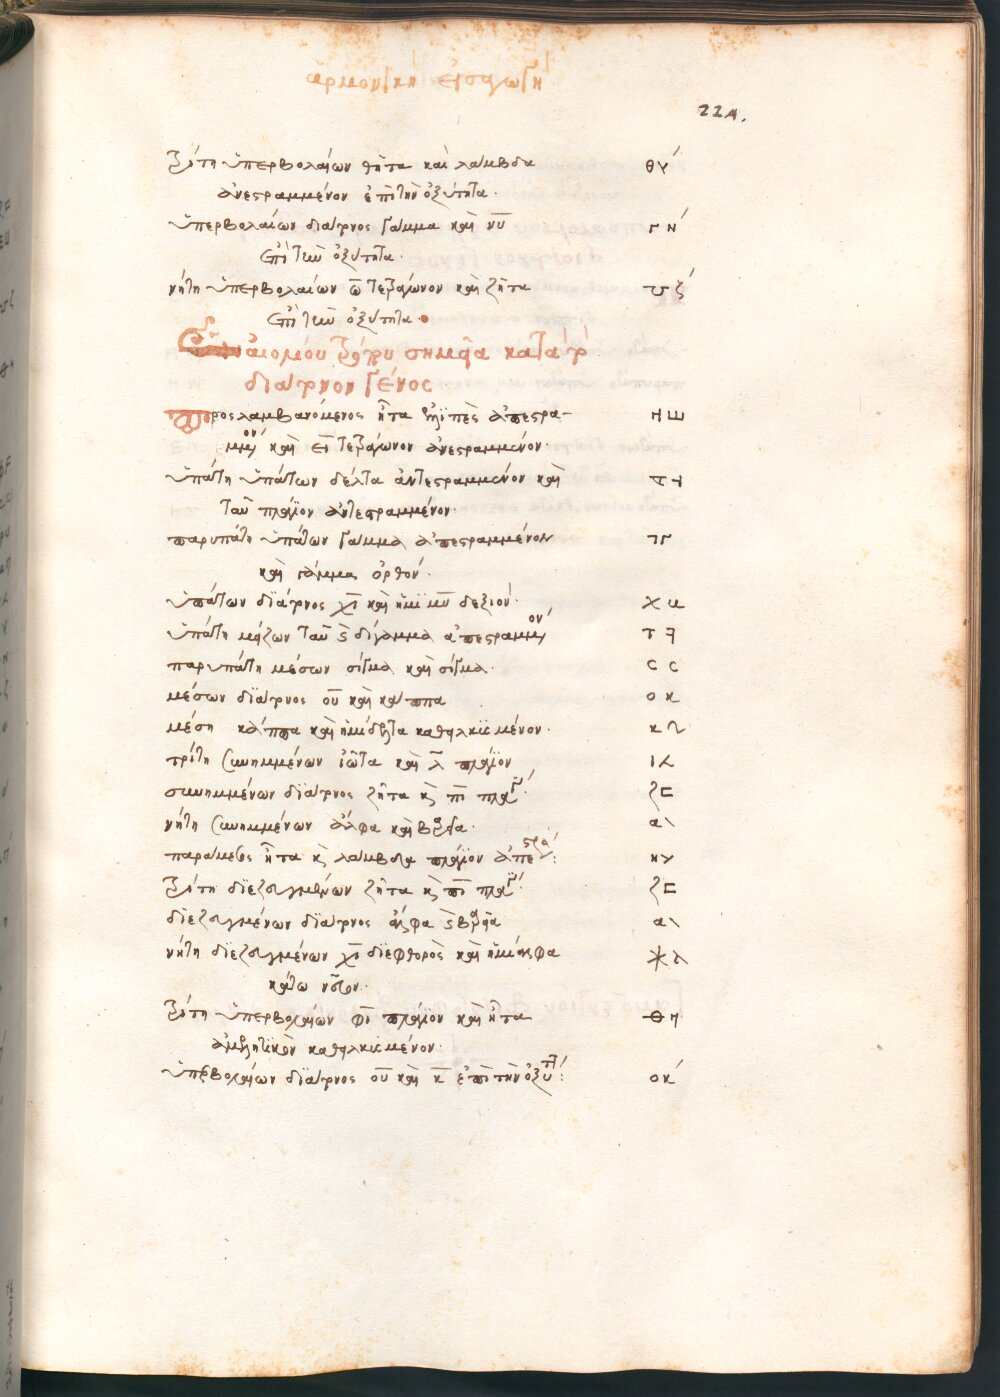 ἁρμονικὴ εἰσαγωγή
224.
τρίτη ὑπερβολαίων θῆτα καὶ λάμβδα θ⅄́
ἀνεστραμμένον ἐπὶ τὴν ὀξύτητα·
ὑπερβολαίων διάτονος γάμμα καὶ νῦ ΓΝ́
ἐπὶ τὴν ὀξύτητα·
νήτη ὑπερβολαίων ω τετράγωνον καὶ ζῆτα ℧Ζ́
ἐπὶ τὴν ὀξύτητα·
τρόπου σημεῖα κατὰ τὸ
διάτονον γένος
προσλαμβανόμενος ἦτα ἀπεστρα-
μμον καὶ ε τετράγωνον ἀνεστραμμένον· ΗШ
ὑπάτη ὑπάτων δέλτα ἀντεστραμμένον καὶ
ταῦ πλάγιον ἀντεστραμμένον·
παρυπάτη ὑπάτων γάμμα ἀπεστραμμένον ⅂Γ
καὶ γάμμα ὀρθόν·
ὑπάτων διάτονος χῖ καὶ ἡμιμυ δεξιόν· Χ
ὑπάτη μέσων ταῦ καὶ δίγαμμα ἀπεστραμμον Τ
παρυπάτη μέσων σίγμα καὶ σίγμα· C C
μέσων διάτονος οὖ καὶ κάππα Ο Κ
μέση κάππα καὶ ἡμίδελτα καθειλκυσμένον· Κ
τρίτη συνημμένων ἰῶτα καὶ λ πλάγιον Ι
συνημμένων διάτονος ζῆτα κ πῖ πλάγι· Ζ⊏
νήτη συνημμένων ἄλφα καὶ βαρεῖα· α\
παράμεσος ἦτα κ λάμβδα πλάγιον ἀπεστρα: Η
τρίτη διεζευγμένων ζῆτα κ πῖ πλάγι· Ζ⊏
διεζευγμένων διάτονος ἄλφα κ βαρεῖα α\
νήτη διεζευγμένων χῖ διεφθορὸς καὶ ἡμίαλφα
κάτω νεῦον·
τρίτη ὑπερβολαίων φῖ πλάγιον καὶ ἦτα
ἀμελητικὸν καθειλκυσμένον·
ὑπερβολαίων διάτονος οὖ καὶ κ ἐπὶ τὴν ὀξύτ: ΟΚ́